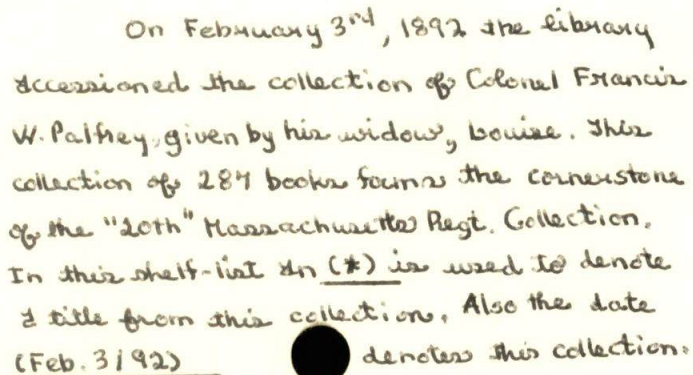 On February 3rd, 1892 the library
accessioned the collection of Colonel Francis
W. Palfrey, given by his widow, Louise. This
collection of 287 books forms the cornerstone
of the "20th" Massachusetts Regt. Collection.
In this shelf-list an (*) is used to denote
a title from this collection. Also the date
(Feb. 3/92) denotes this collection.